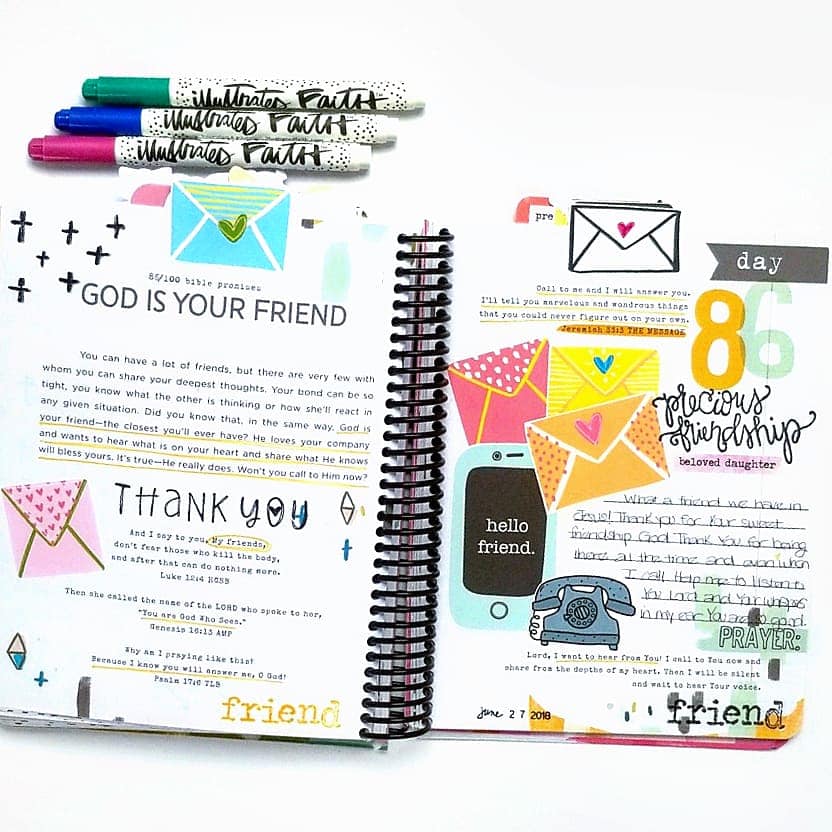 illustrated Faith
illustrated Faith
illustrated Faith
85/100 bible promises
GOD IS YOUR FRIEND
You can have a lot of friends, but there are very few with
whom you can share your deepest thoughts. Your bond can be so
tight, you know what the other is thinking or how she'll react in
any given situation. Did you know that, in the same way, God is
your friend—the closest you'll ever have? He loves your company
and wants to hear what is on your heart and share what He knows
will bless yours. It's true—He really does. Won't you call to Him now?
THANK YOU
And I say to you, My friends,
don't fear those who kill the body,
and after that can do nothing more.
Luke 12:4 HCSB
Then she called the name of the LORD who spoke to her,
"You are God Who Sees."
Genesis 16:13 AMP
Why am I praying like this?
Because I know you will answer me, O God!
Psalm 17:6 TLB
friend
pre
Call to me and I will answer you.
I'll tell you marvelous and wondrous things
that you could never figure out on your own.
Jeremiah 33:3 THE MESSAGE
day
86
precious
friendship
beloved daughter
hello
friend.
What a friend we have in
Jesus! Thank you for Your sweet
friendship God. Thank You for being
there all the time and even when
I call. Help me to listen to
You Lord and Your whispers
in my ear. You are so good.
PRAYER:
Lord, I want to hear from You! I call to You now and
share from the depths of my heart. Then I will be silent
and wait to hear Your voice.
june 27 2018
friend